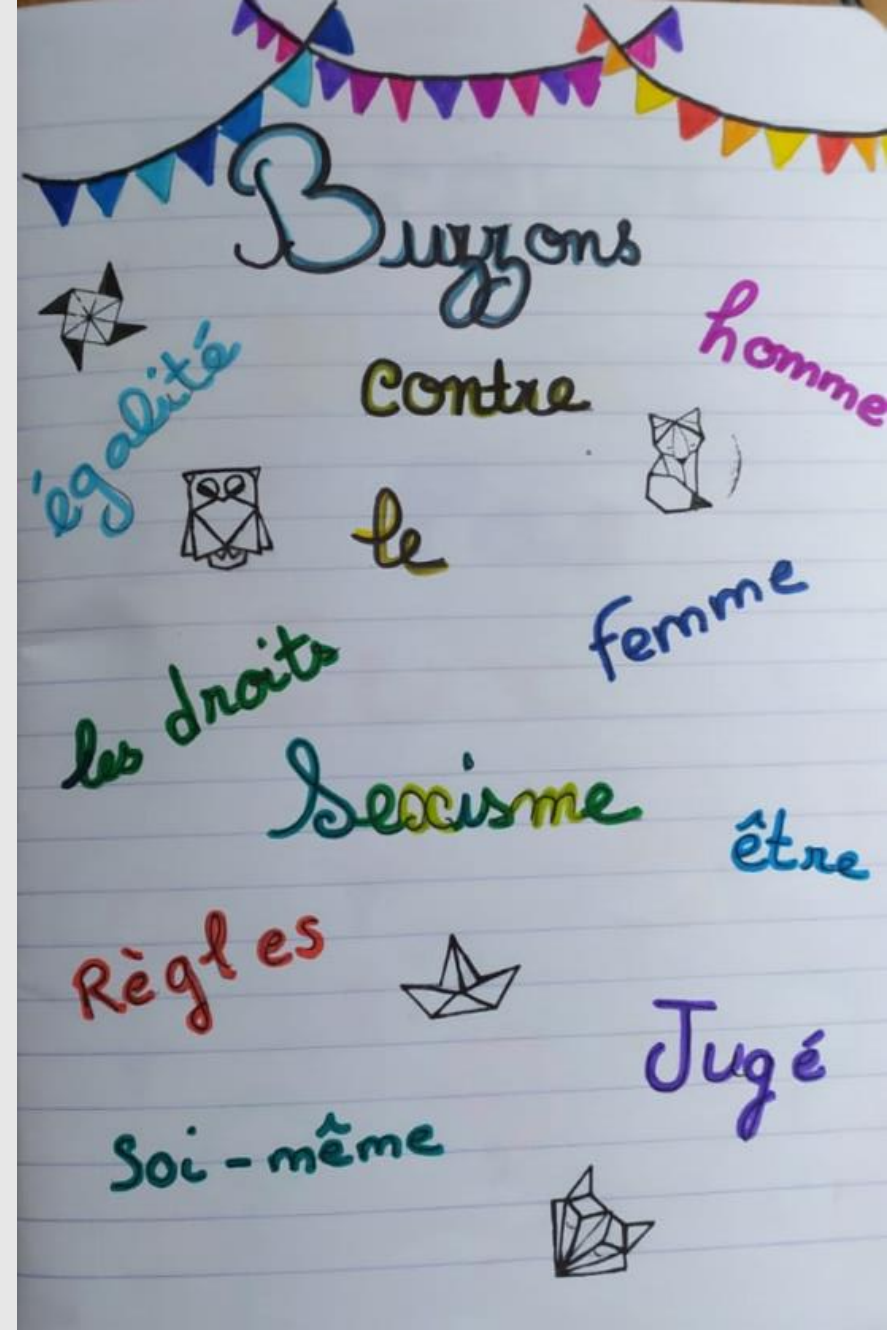 Buzzons
homme
égalité
contre
le
femme
les droits
Sexisme
être
Règles
Jugé
Soi-même